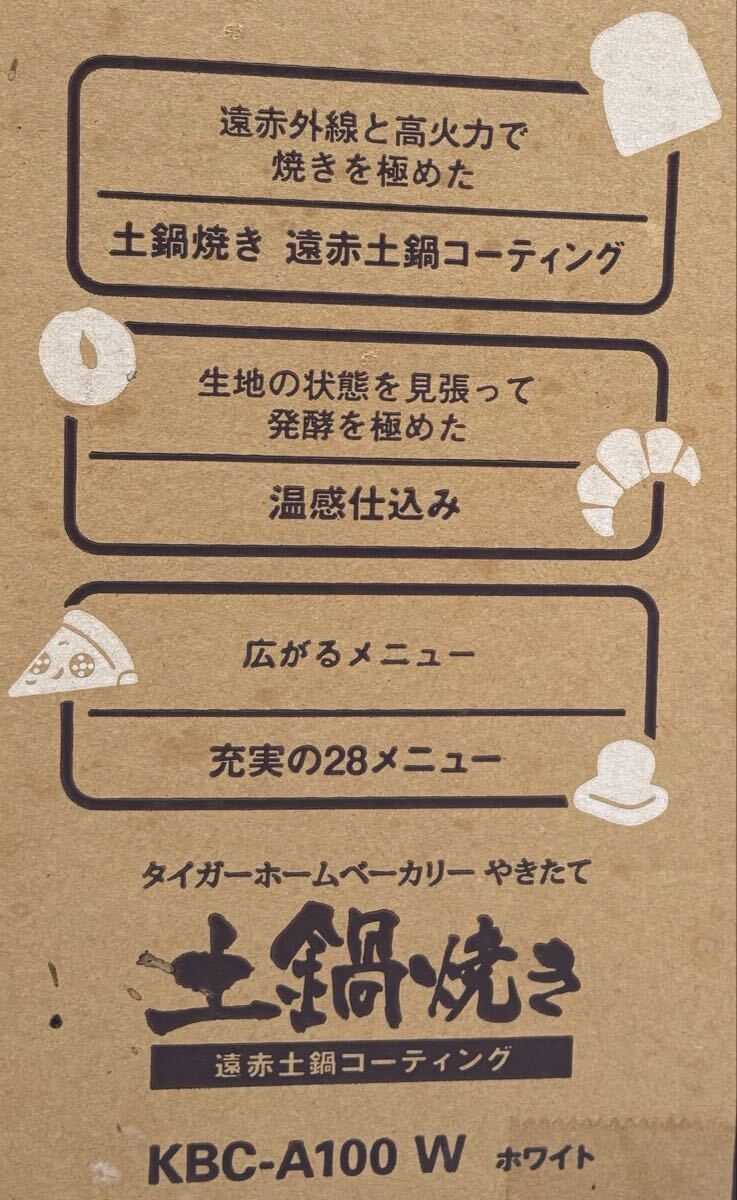 遠赤外線と高火力で
焼きを極めた
土鍋焼き 遠赤土鍋コーティング
生地の状態を見張って
発酵を極めた
温感仕込み
広がるメニュー
充実の28メニュー
タイガーホームベーカリー やきたて
土鍋焼き
遠赤土鍋コーティング
KBC-A100 W ホワイト